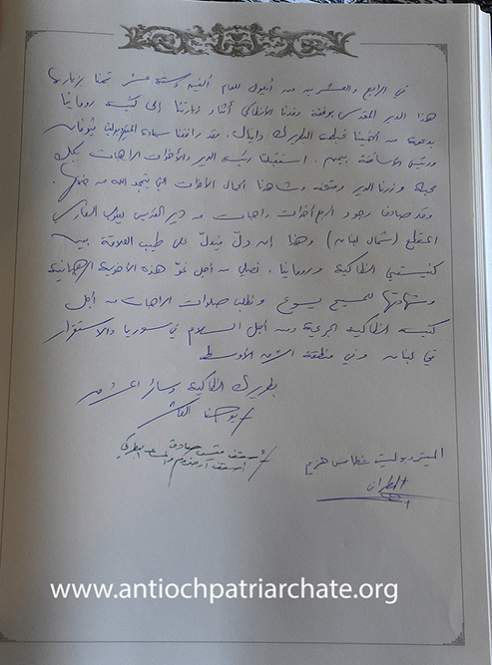 في الرابع والعشرين من أيلول للعام ألفين وستة عشر قمنا بزيارة
هذا الدير المقدس برفقة وفدنا الأنطاكي أثناء زيارتنا إلى كنيسة رومانيا
بدعوة من أخينا غبطة البطريرك دانيال. وقد رافقنا سيادة المتروبوليت ثيوفان
ورئيس الأساقفة. استقبلتنا رئيسة الدير والأخوات الراهبات بكل
محبة وزرنا الدير ومتحفه وشاهدنا أعمال الأخوات التي يتمجد الله من خلالها.
وقد صادفنا وجود أربع أخوات راهبات من دير القديس يعقوب الفارسي
المقطع (شمال لبنان) وهذا إن دلّ فيدلّ على طيب العلاقة بين
كنيستي أنطاكية ورومانيا. نصلي من أجل نموّ هذه الأخوية الرهبانية
وشهادتها للمسيح يسوع ونطلب صلوات الراهبات من أجل
كنيسة أنطاكية الجريحة ومن أجل السلام في سوريا والاستقرار
في لبنان وفي منطقة الشرق الأوسط
بطريرك أنطاكية وسائر المشرق
يوحنا العاشر
أسقف
المتروبوليت غطاس هزيم
www.antiochpatriarchate.org